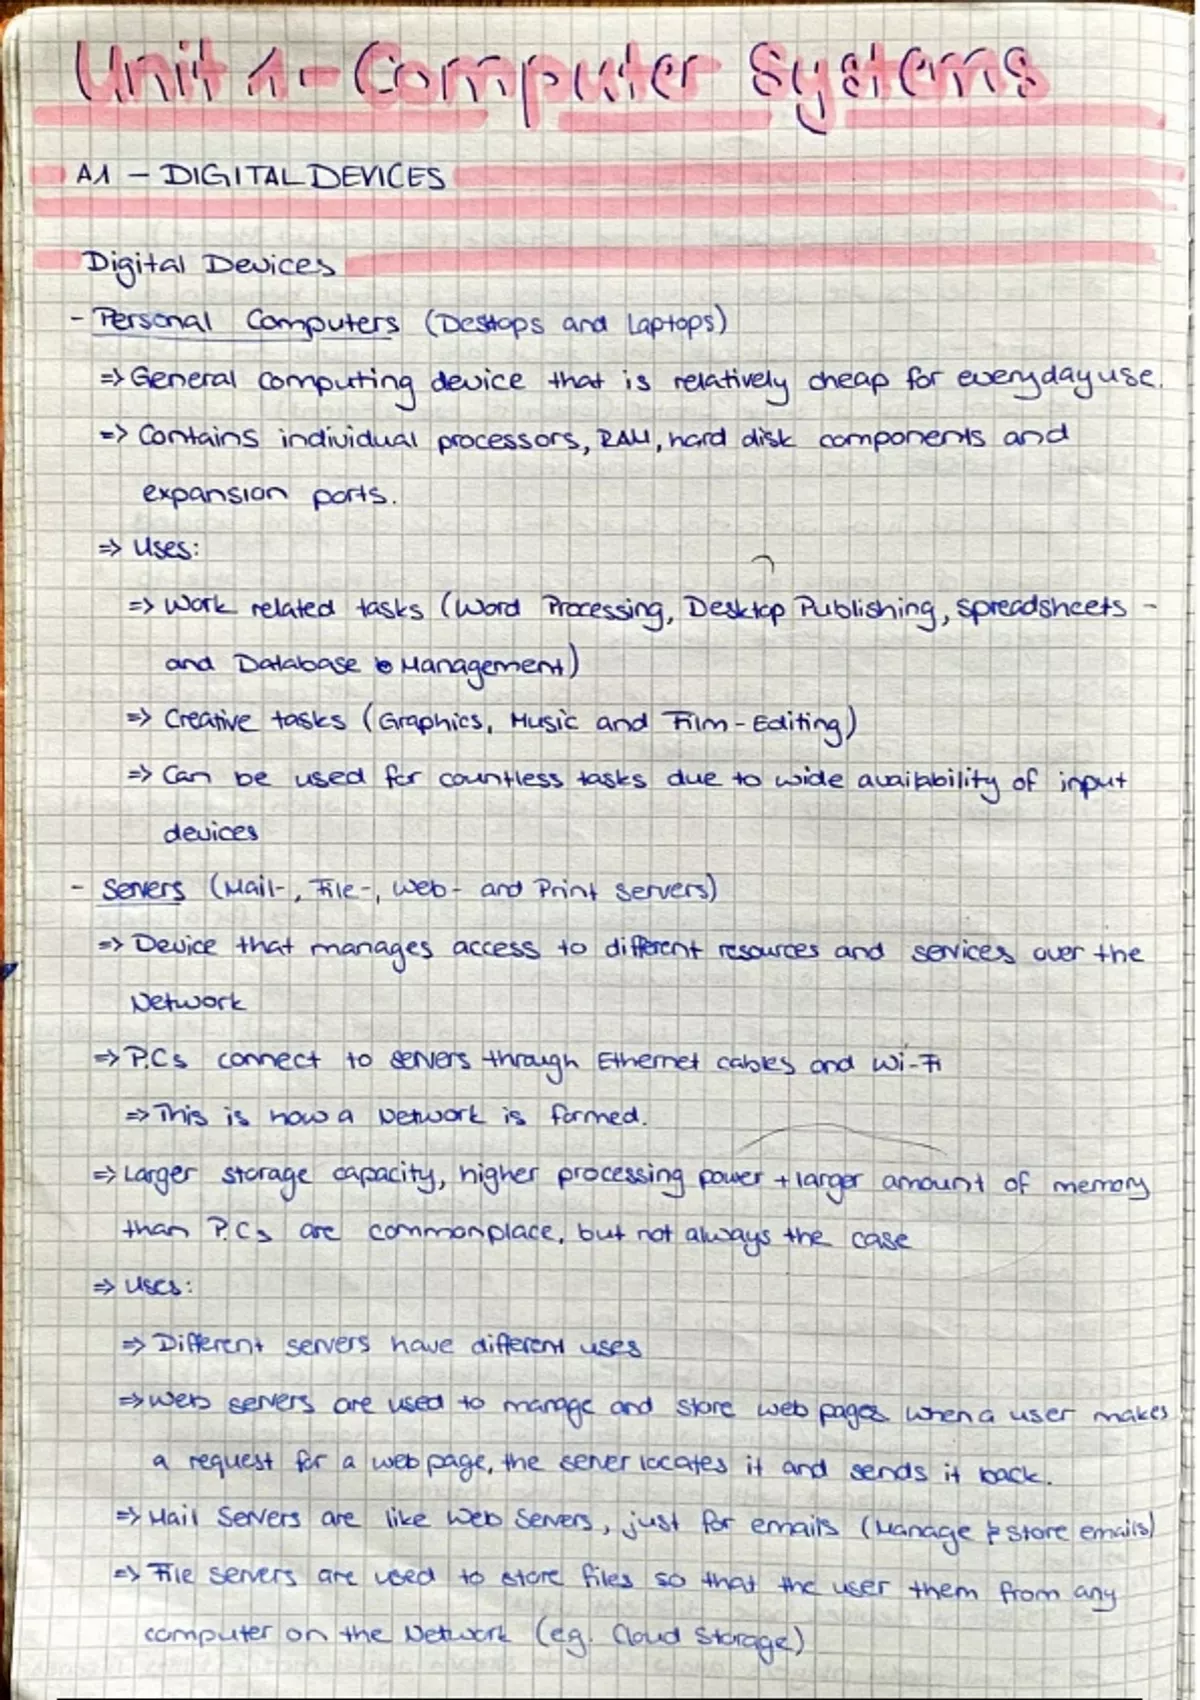 Unit 1 - Computer Systems
A1 - DIGITAL DEVICES
Digital Devices
- Personal Computers (Desktops and Laptops)
=> General computing device that is relatively cheap for everyday use.
=> Contains individual processors, RAM, hard disk components and
expansion ports.
=> Uses:
=> Work related tasks (Word Processing, Desktop Publishing, Spreadsheets -
and Database Management)
=> Creative tasks (Graphics, Music and Film-Editing)
=> Can be used for countless tasks due to wide availability of input
devices
- Servers (Mail-, File-, Web- and Print servers)
=> Device that manages access to different resources and services over the
Network
=> P.Cs connect to servers through Ethernet cables and Wi-Fi
=> This is how a Network is formed.
=> Larger storage capacity, higher processing power + larger amount of memory
than P.Cs are commonplace, but not always the case
=> Uses:
=> Different servers have different uses
=> Web servers are used to manage and store web pages when a user makes
a request for a web page, the server locates it and sends it back.
=> Mail Servers are like Web Servers, just for emails (Manage & store emails)
=> File servers are used to store files so that the user them from any
computer on the Network (eg. Cloud Storage)